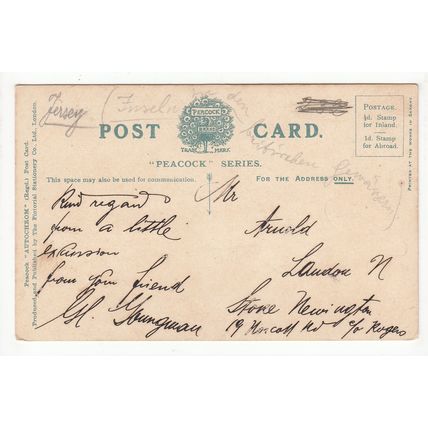 Jersey (Inseln in den britischen Gewässern)
PEACOCK
BRAND
TRADE MARK
POST CARD.
"PEACOCK" SERIES.
POSTAGE.
½d. Stamp
for Inland.
1d. Stamp
for Abroad.
PRINTED AT THE WORKS IN SAXONY
Peacock "AUTOCHROM" (Regd.) Post Card.
Produced and Published by The Pictorial Stationery Co. Ltd., London.
This space may also be used for communication.
FOR THE ADDRESS ONLY.
Kind regards
from a little
excursion
from your friend
Youngman
Mr
Arnold
London N
Stoke Newington
19 Rd c/o Rogers